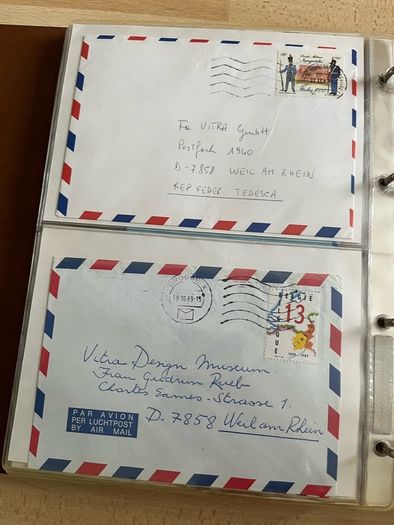 Fa VITRA GmbH
Postfach 1940
D-7858 WEIL AM RHEIN
REP FEDER TEDESCA
19.10.89-15
BELGIE
13
BELGIQUE
Vitra Design Museum
Frau Gudrun Rueb
Charles Eames-Strasse 1.
D. 7858 Weil am Rhein
PAR AVION
PER LUCHTPOST
BY AIR MAIL